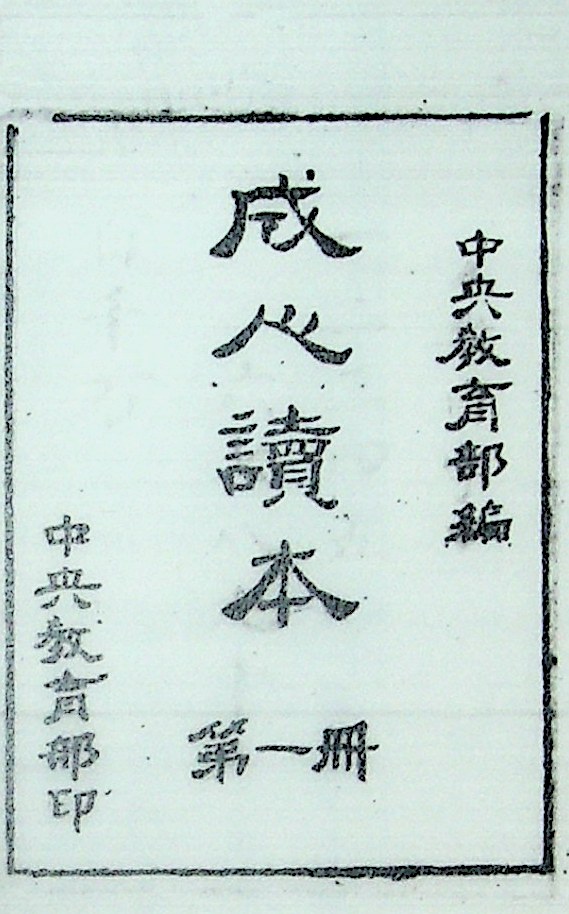 中央教育部編
成人讀本
第一册
中央教育部印